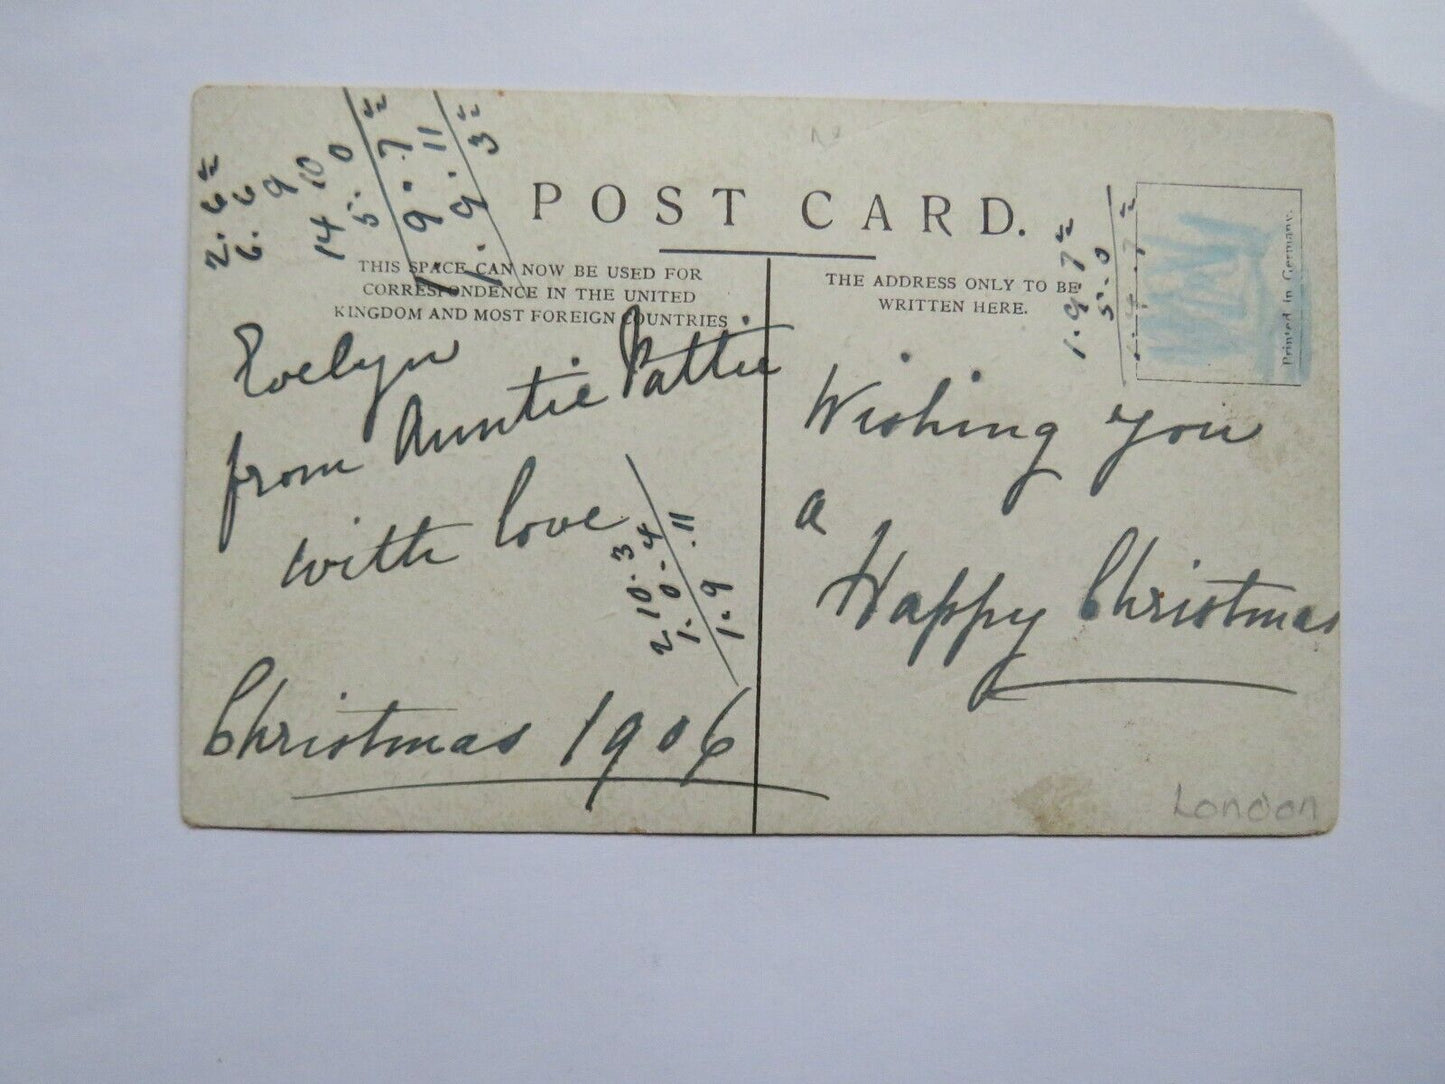 POST CARD.
THIS SPACE CAN NOW BE USED FOR
CORRESPONDENCE IN THE UNITED
KINGDOM AND MOST FOREIGN COUNTRIES
THE ADDRESS ONLY TO BE
WRITTEN HERE.
Printed in Germany.
Evelyn
from Auntie Pattie
with love
Christmas 1906
Wishing you
a
Happy Christmas
London
2.6½
6.6
9
14 10
5.0
9.7½
9.11
1.9.3½
2 10.3
1.0.4
.11
1.9
1.9.7½
5.0
1.4.7½